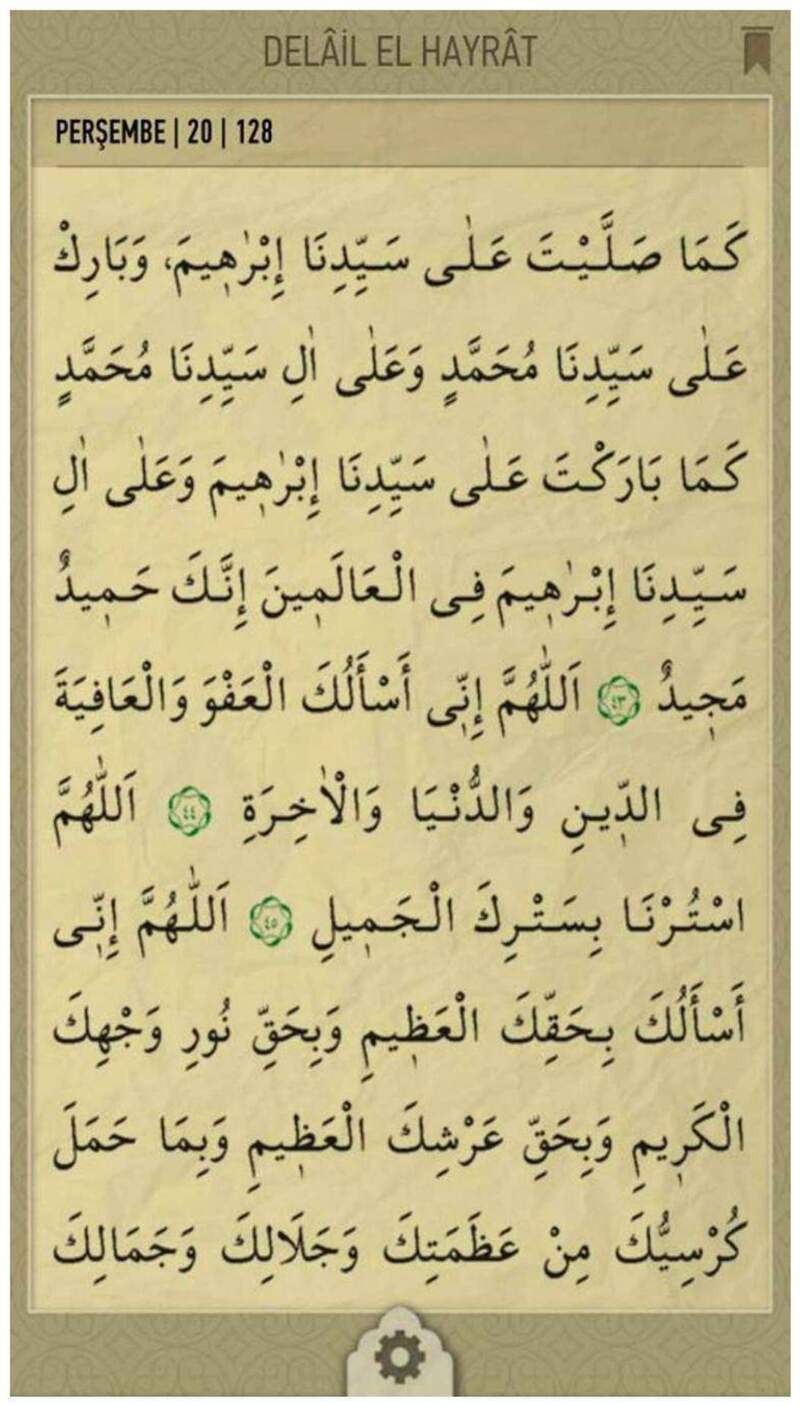 DELÂİL EL HAYRÂT
PERŞEMBE | 20 | 128
كَمَا صَلَّيْتَ عَلٰى سَيِّدِنَا إِبْرٰهِيمَ، وَبَارِكْ
عَلٰى سَيِّدِنَا مُحَمَّدٍ وَعَلٰى اٰلِ سَيِّدِنَا مُحَمَّدٍ
كَمَا بَارَكْتَ عَلٰى سَيِّدِنَا إِبْرٰهِيمَ وَعَلٰى اٰلِ
سَيِّدِنَا إِبْرٰهِيمَ فِى الْعَالَمِينَ إِنَّكَ حَمِيدٌ
مَجِيدٌ ٤٣ اَللّٰهُمَّ إِنِّى أَسْأَلُكَ الْعَفْوَ وَالْعَافِيَةَ
فِى الدِّينِ وَالدُّنْيَا وَالْاٰخِرَةِ ٤٤ اَللّٰهُمَّ
اسْتُرْنَا بِسَتْرِكَ الْجَمِيلِ ٤٥ اَللّٰهُمَّ إِنِّى
أَسْأَلُكَ بِحَقِّكَ الْعَظِيمِ وَبِحَقِّ نُورِ وَجْهِكَ
الْكَرِيمِ وَبِحَقِّ عَرْشِكَ الْعَظِيمِ وَبِمَا حَمَلَ
كُرْسِيُّكَ مِنْ عَظَمَتِكَ وَجَلَالِكَ وَجَمَالِكَ